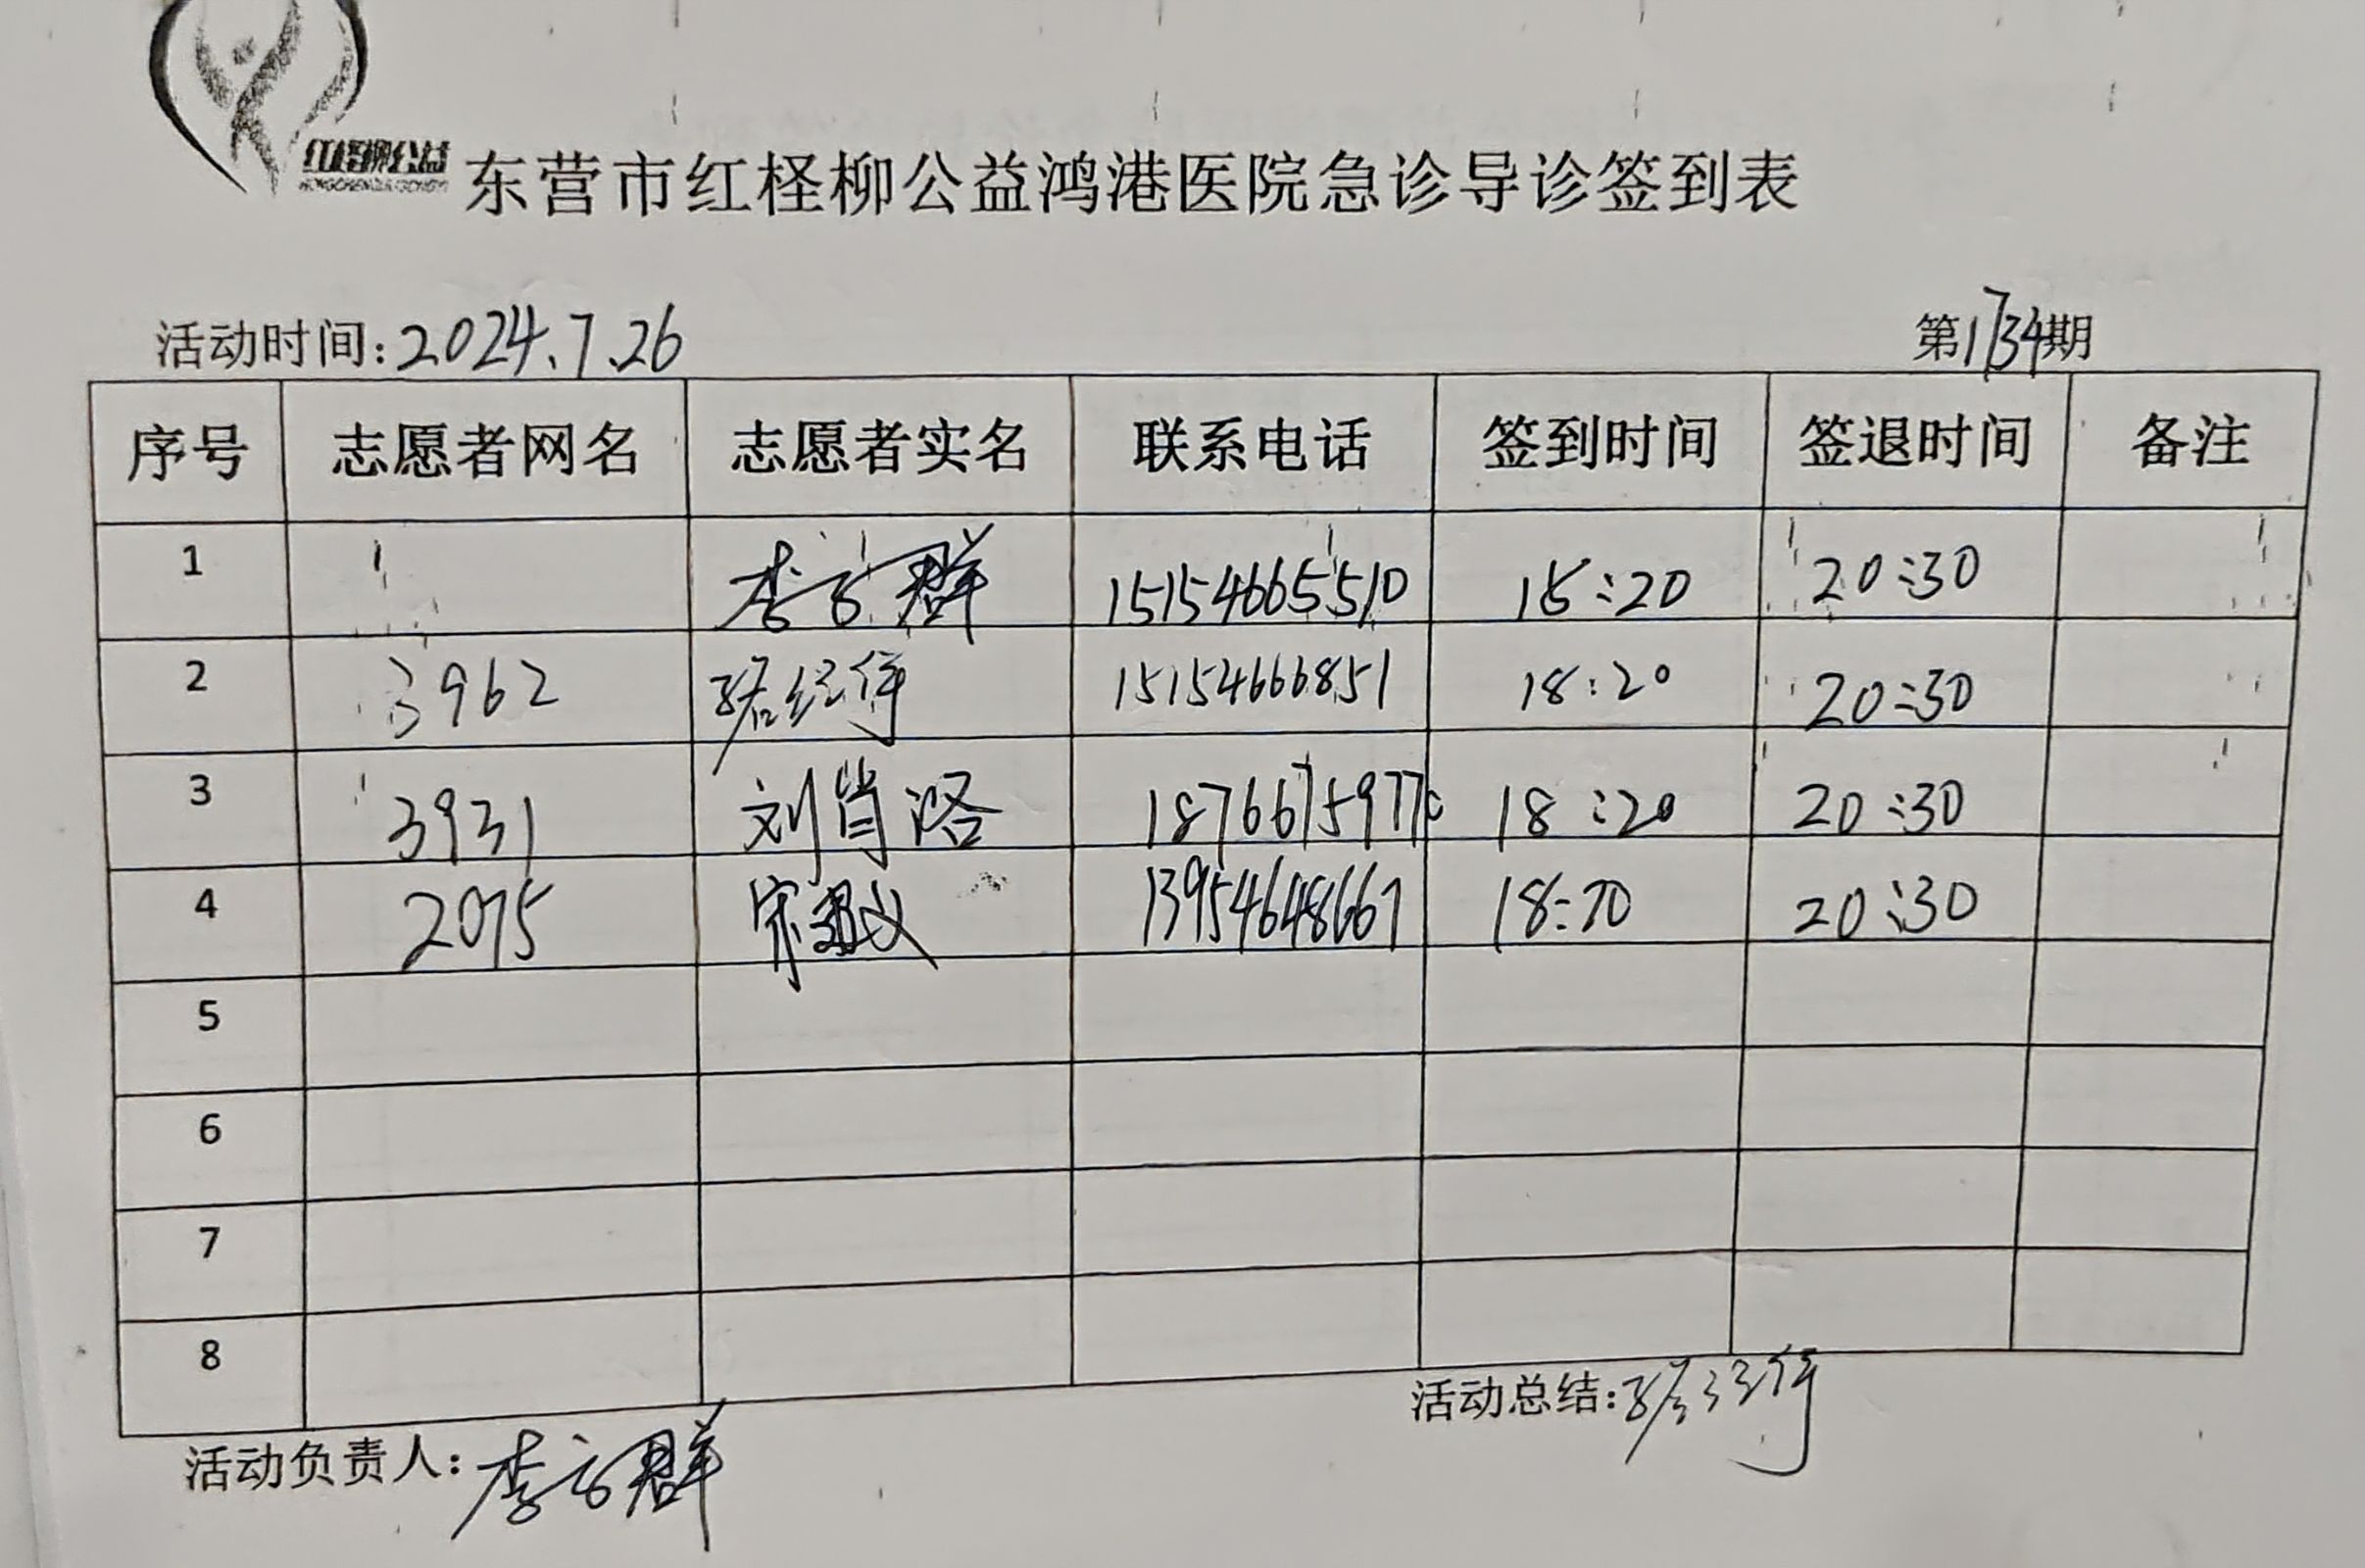 红柽柳公益
东营市红柽柳公益鸿港医院急诊导诊签到表
活动时间:2024.7.26 第1734期
序号 志愿者网名 志愿者实名 联系电话 签到时间 签退时间 备注
1 李 群 15154665510 18:20 20:30
2 3962 15154666851 18:20 20:30
3 3931 刘肖洛 1876675977 18:20 20:30
4 2075 宋 义 13954648667 18:20 20:30
5
6
7
8
活动总结:
活动负责人:李 群